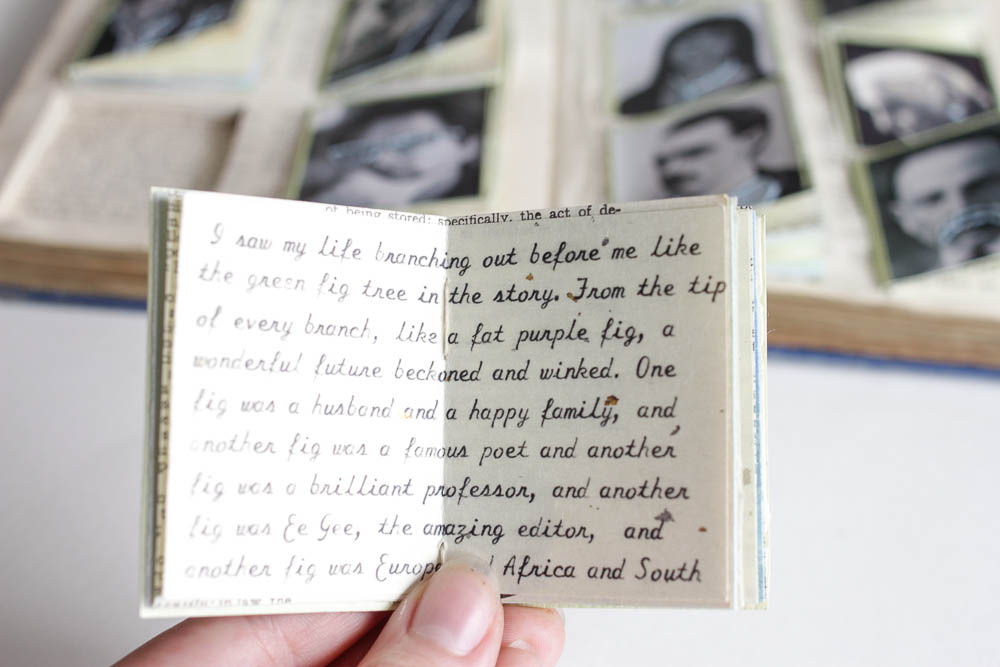 of being stored; specifically, the act of de-
I saw my life branching out before me like
the green fig tree in the story. From the tip
of every branch, like a fat purple fig, a
wonderful future beckoned and winked. One
fig was a husband and a happy family, and
another fig was a famous poet and another
fig was a brilliant professor, and another
fig was Ee Gee, the amazing editor, and
another fig was Europe Africa and South